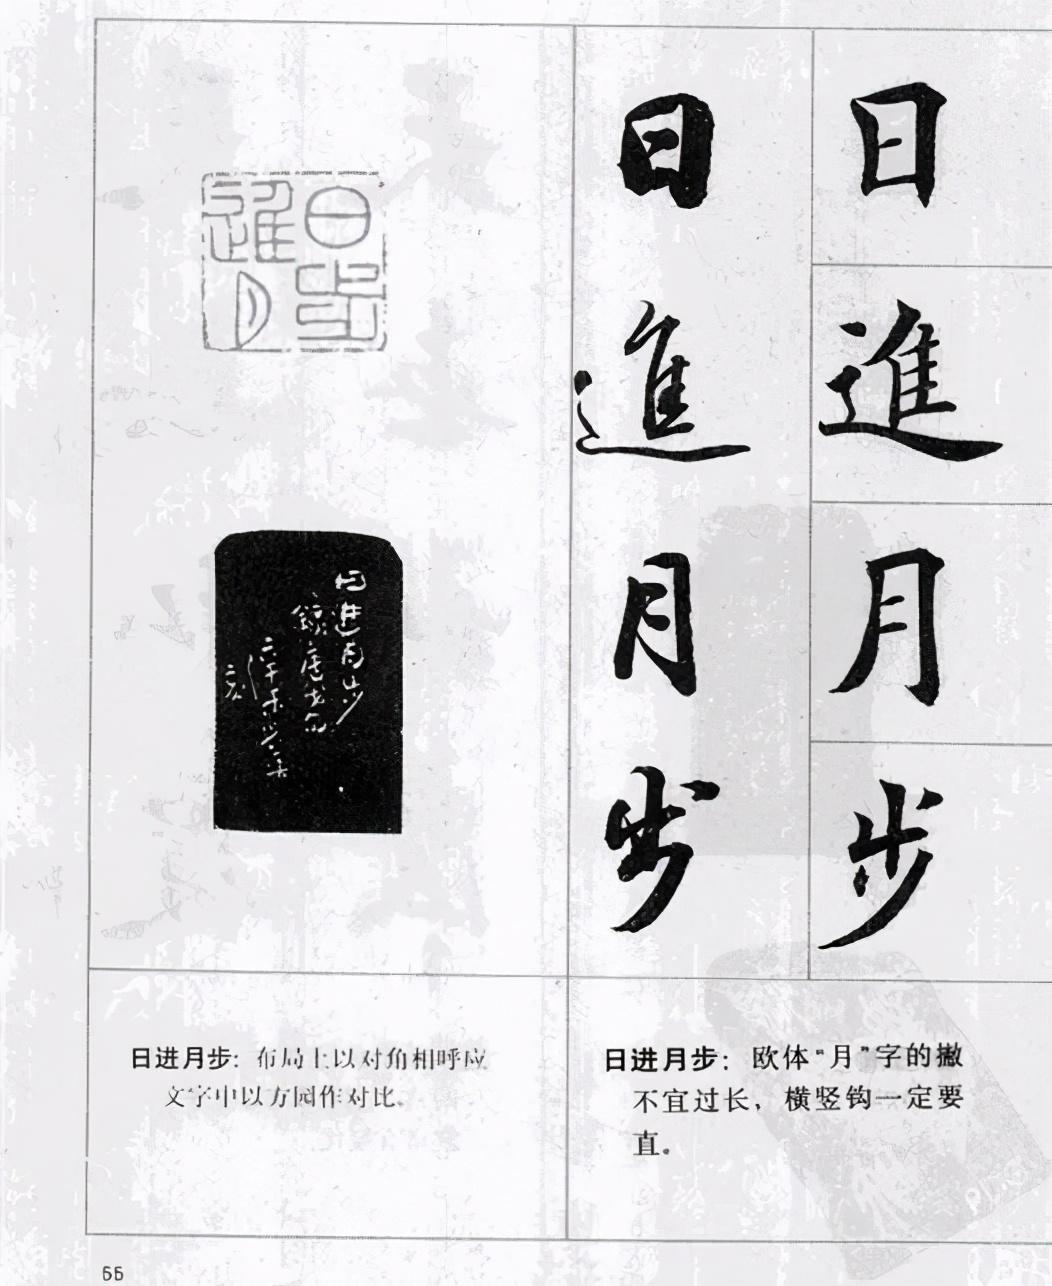 日
進
月
步
日
進
月
步
日步
進月
日进月步
日进月步：布局上以对角相呼应
文字中以方园作对比。
日进月步：欧体“月”字的撇
不宜过长，横竖钩一定要
直。
66